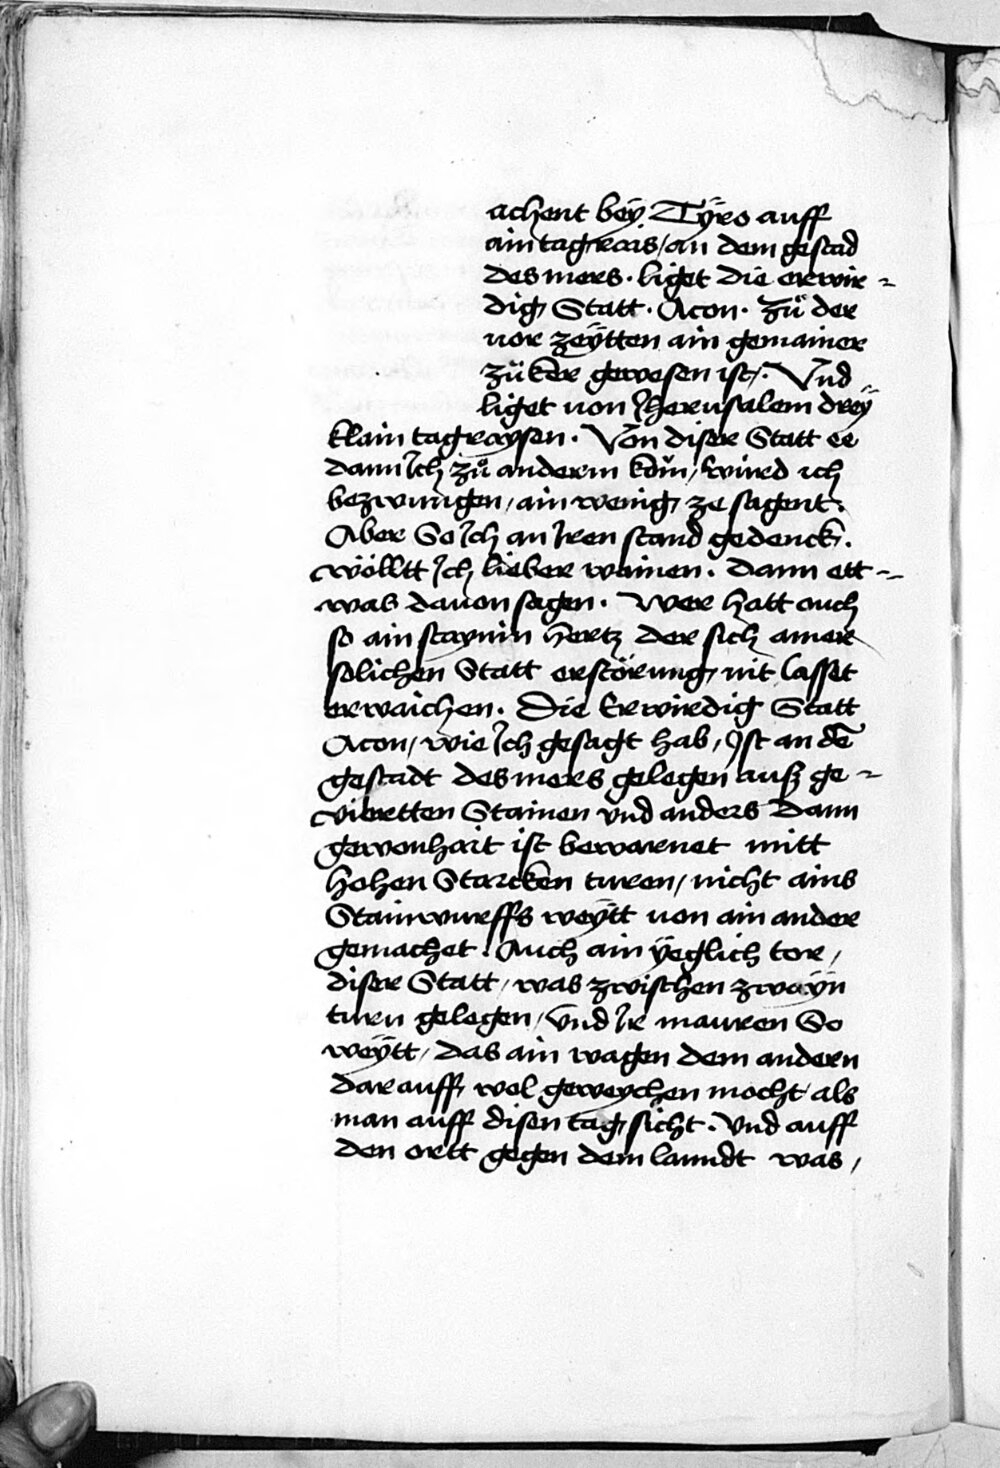 achent bey Tÿro auff
ain tagrais / an dem gestad
des mers · liget die erwir-
dig Statt · Acon · Zů der
vor zeÿtten ain gemainer
zůker gewesen ist /. Vnd
liget von Jherusalem dreÿ
klain tagraÿsen · Von diser Statt ee
dann Jch zů anderm kōm / wird ich
bezwungen / ain wenig ze sagent ·
Aber So Jch an Jren stand gedenck ·
wölltt Jch lieber wainen · dann ett-
was dauon sagen · Wer hatt auch
so ain staynin hertz der sich ainer
solichen Statt erstörung nit lasset
erwaichen · Die Erwirdig Statt
Acon / wie Jch gesagt hab / Jst an dē
gestadt des mers gelegen auß ge-
vieretten Stainen vnd anders dann
gewonhait ist bewarnet mitt
hohen Starcken turen / nicht ains
Stainwurffs weÿtt von ain ander
gemachet · Auch ain ÿeglich tor /
diser Statt / was zwischen zwaÿn
turn gelegen / vnd Jr mauren So
weÿtt / das ain wagen dem andern
dar auff wol geweychen mocht / als
man auff disen tag sicht · Vnd auff
den ortt gegen dem lanndt was /